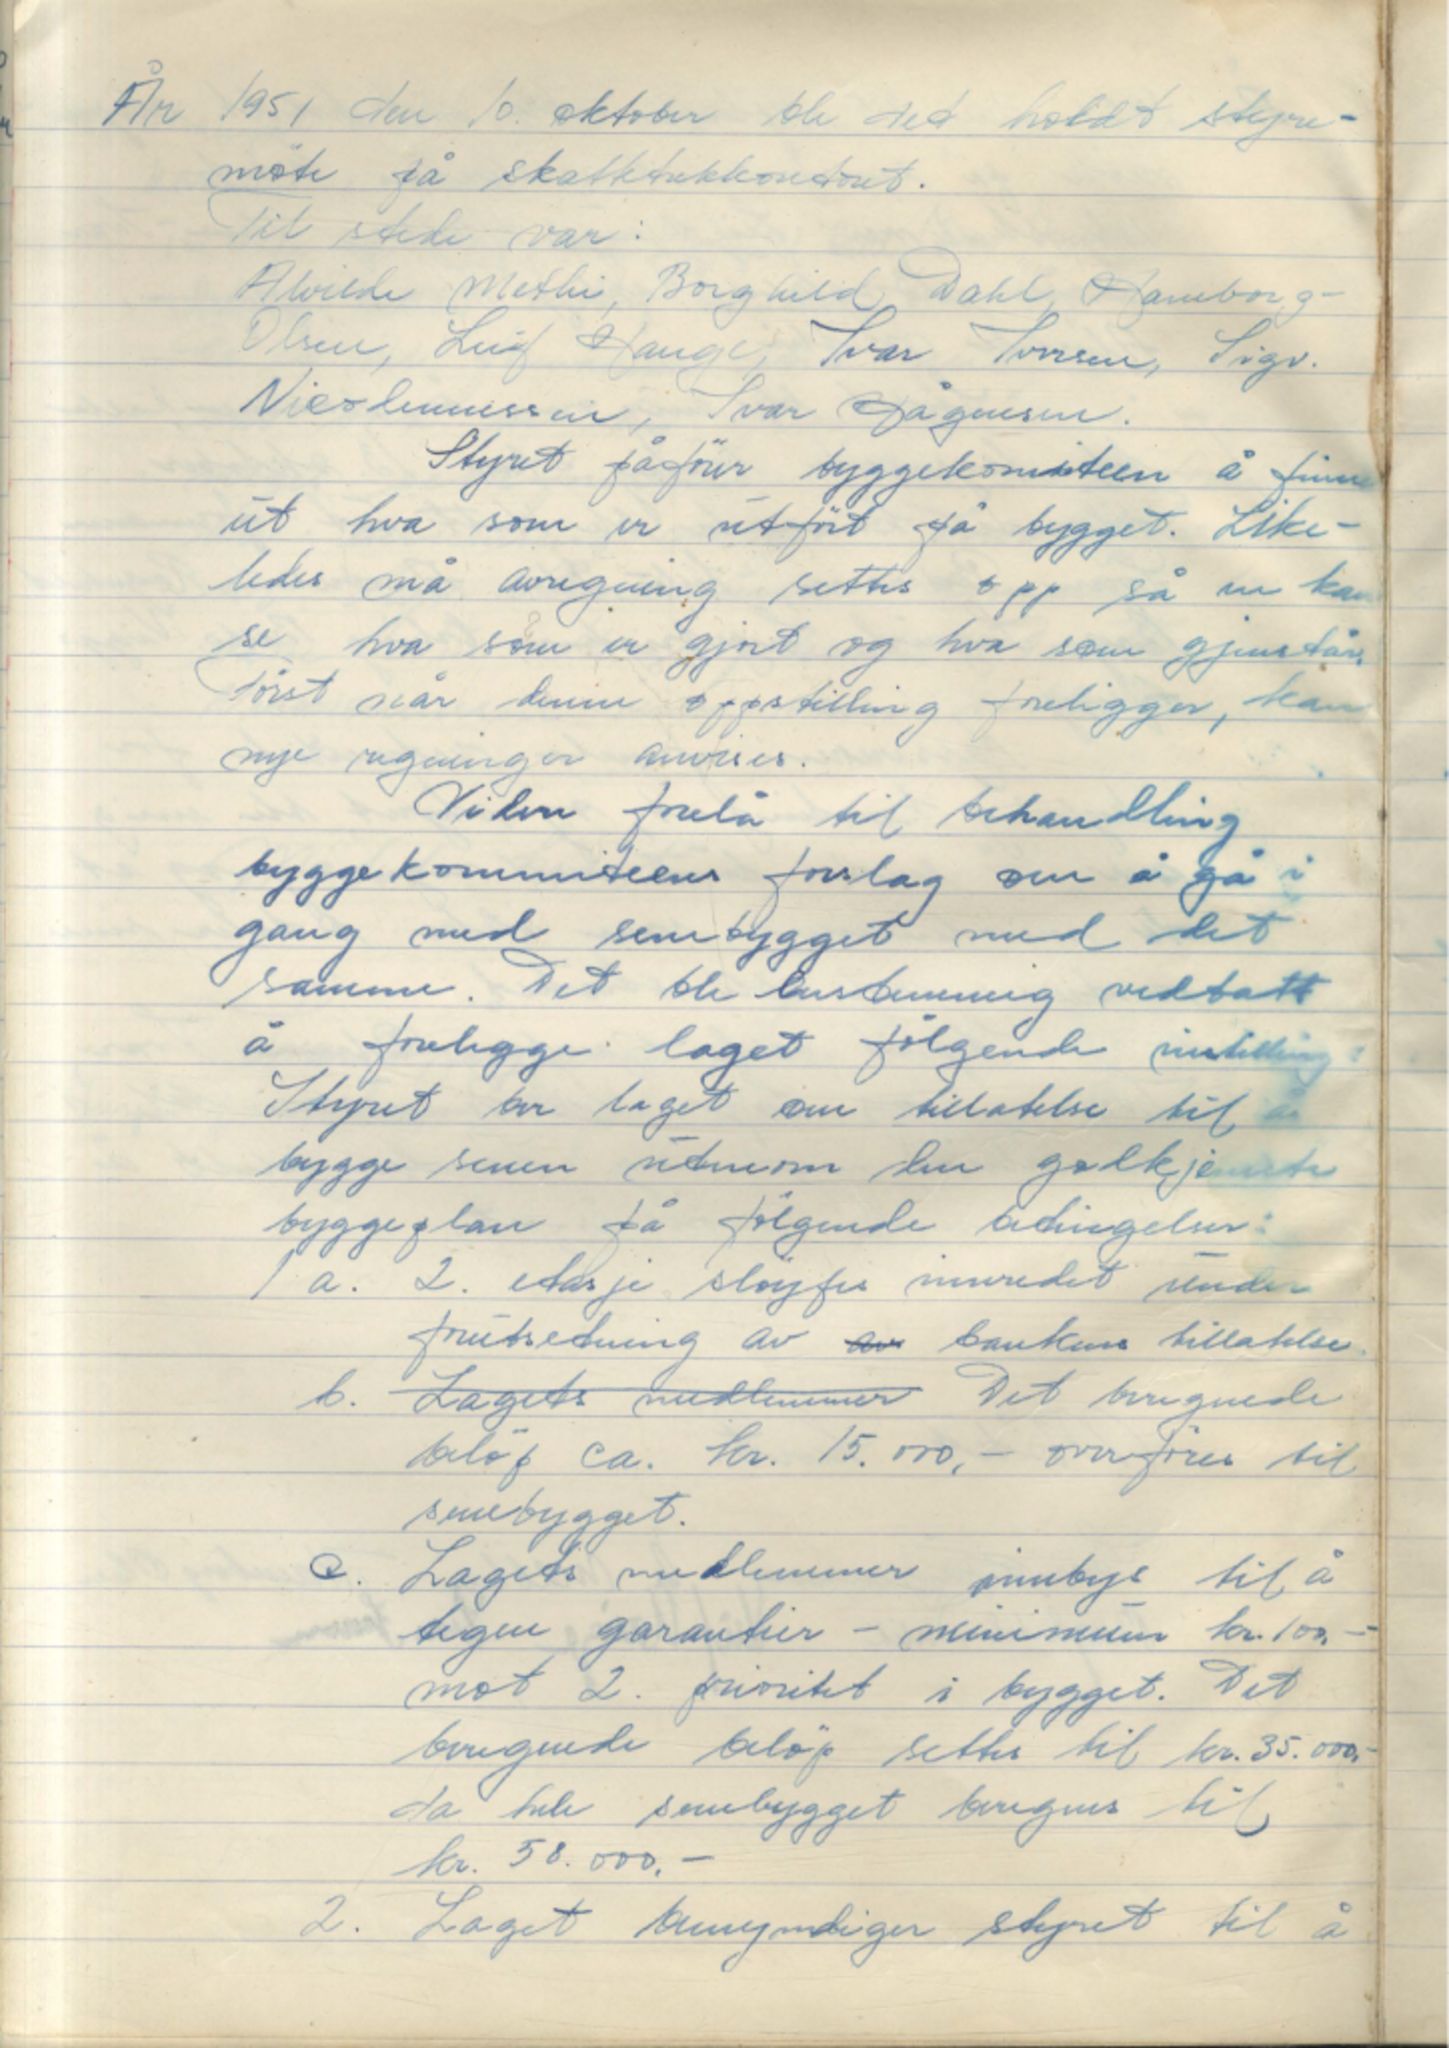 År 1951 den 10. oktober ble det holdt styre-
møte på skattetrekkontoret.
Til stede var:
Alvilde Methi, Borghild Dahl, Haneborg-
Olsen, Leif Hauge, Ivar Iversen, Sigv.
Nicolennessen, Ivar Hågensen.
Styret påfører byggekomiteen å finne
ut hva som er utført på bygget. Like-
ledes må avregning settes opp så en kan
se hva som er gjort og hva som gjenstår.
Først når denne oppstilling foreligger, kan
nye regninger anvises.
Videre forelå til behandling
byggekommiteens forslag om å gå i
gang med senebygget med det
samme. Det ble enstemmig vedtatt
å forelegge laget følgende innstilling:
Styret ber laget om tillatelse til å
bygge senen utenom den godkjente
byggeplan på følgende betingelser:
1 a. 2. etasje sløyfes innredet under
forutsetning av av bankens tillatelse.
b. Lagets medlemmer Det beregnede
beløp ca. kr. 15.000,- overføres til
senebygget.
c. Lagets medlemmer innbys til å
tegne garantier - minimum kr. 100,-
mot 2. prioritet i bygget. Det
beregnede beløp settes til kr. 35.000,-
da hele senebygget beregnes til
kr. 58.000,-
2. Laget bemyndiger styret til å